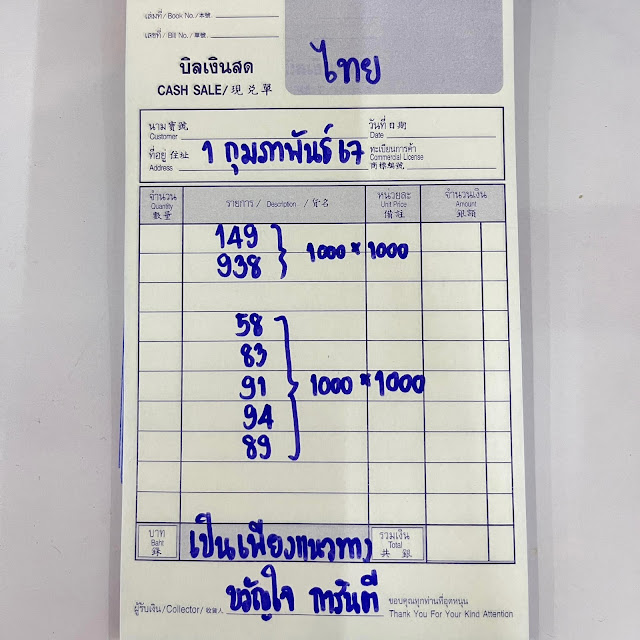 เล่มที่ / Book No. / 本號
เลขที่ / Bill No. / 單號
ไทย
บิลเงินสด
CASH SALE / 現兑單
นาม 寶號
Customer
วันที่ 日期
Date
1 กุมภาพันธ์ 67
ที่อยู่ 住址
Address
ทะเบียนการค้า
Commercial License
商標編號
จำนวน
Quantity
數量
รายการ / Description / 貨名
หน่วยละ
Unit Price
備註
จำนวนเงิน
Amount
銀額
149
938
1000 * 1000
58
83
91
94
89
1000 * 1000
บาท
Baht
銖
เป็นเพียงแนวทาง
รวมเงิน
Total
共銀
ขวัญใจ การันตี
ผู้รับเงิน / Collector / 收銀人
ขอบคุณทุกท่านที่อุดหนุน
Thank You For Your Kind Attention